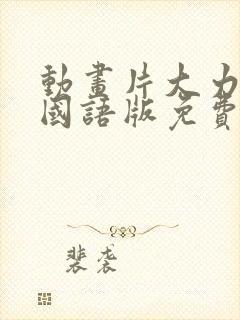 動畫片大力
國語版免費
裴袭